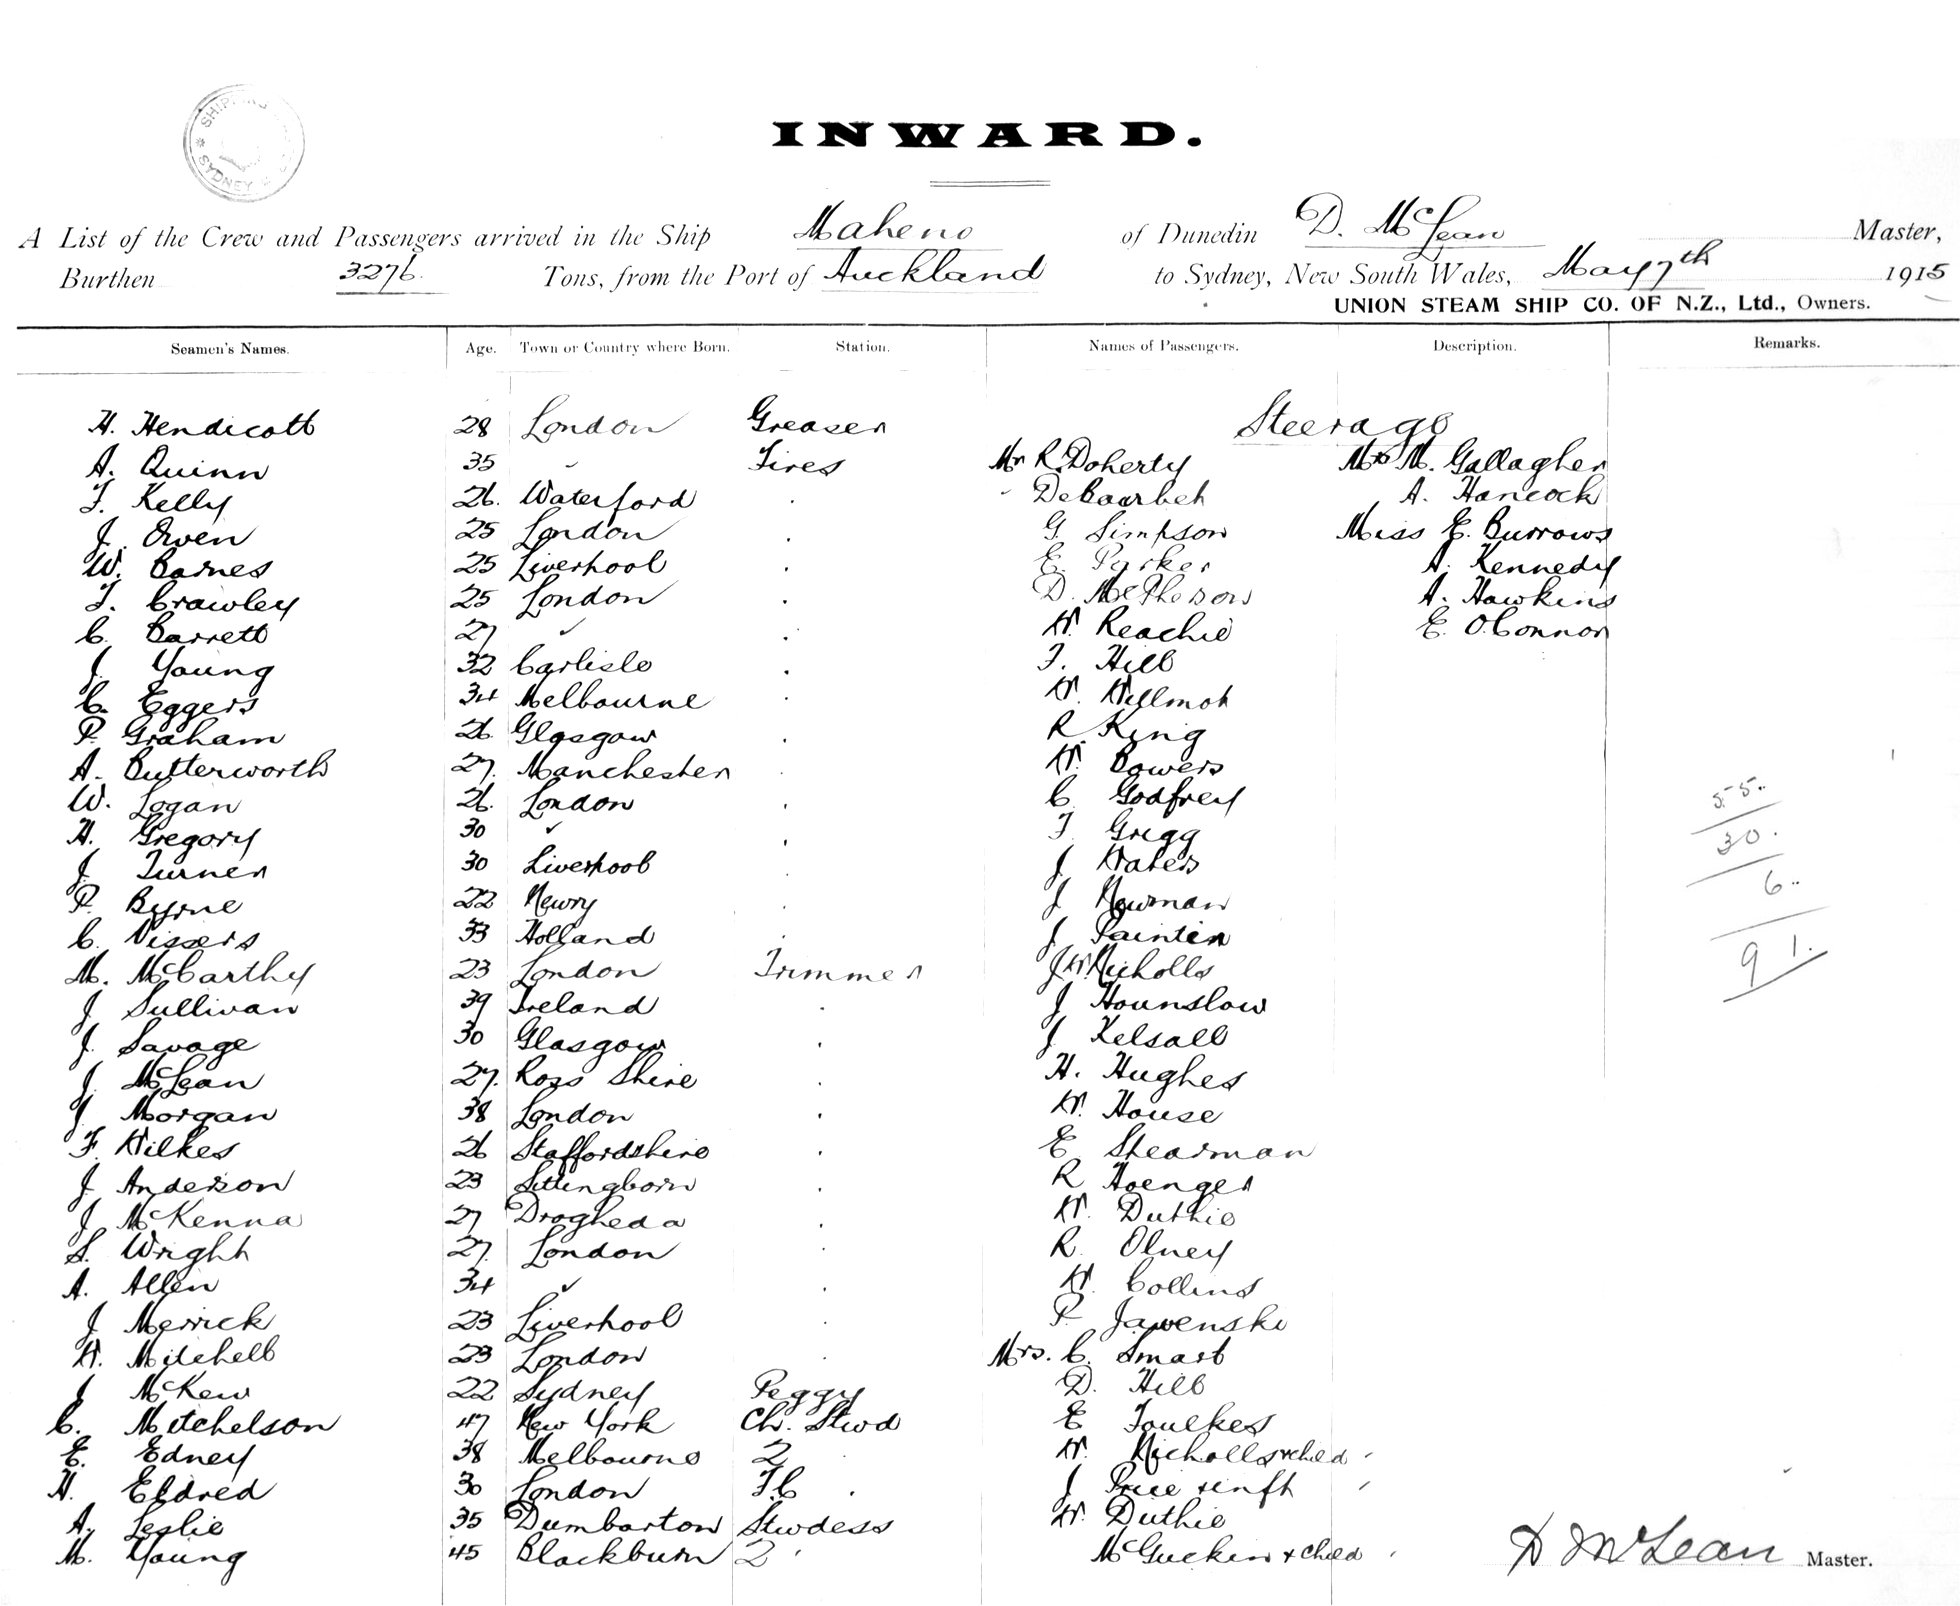 SHIPPING SYDNEY
INWARD.
A List of the Crew and Passengers arrived in the Ship Maheno of Dunedin D. McLean Master,
Burthen 3276. Tons, from the Port of Auckland to Sydney, New South Wales, May 7th 1915
UNION STEAM SHIP CO. OF N.Z., Ltd., Owners.
Seamen's Names. Age. Town or Country where Born. Station. Names of Passengers. Description. Remarks.
H. Hendicott 28 London Greaser Steerage
A. Quinn 35 " Fires Mr R. Doherty Mrs M. Gallagher
T. Kelly 26. Waterford . " A. Hancock
J. Owen 25 London . G. Simpson Miss E. Burrows
W. Barnes 25 Liverpool . E. Parker A. Kennedy
T. Crawley 25 London . D. McPherson A. Hawkins
C. Barrett 27 " . W. Reachie E. O'Connor
J. Young 32 Carlisle . T. Hill
C. Eggers 34 Melbourne . W. Willmot
P. Graham 26. Glasgow . R. King
A. Butterworth 27. Manchester . W. Bowers
W. Logan 26. London . C. Godfrey 55.
H. Gregory 30 " . T Grigg 30.
J. Turner 30 Liverpool . J Waters
P. Byrne 22 Newry . J Newman 6..
C. Vissers 33 Holland . J. Painter
M. McCarthy 23 London Trimmer J W Nicholls 91.
J Sullivan 39 Ireland . J Hounslow
J. Savage 30 Glasgow . J Kelsall
J. McLean 27. Ross Shire . H. Hughes
J. Morgan 38 London . W. House
F. Wilkes 26 Staffordshire . E Stearman
J Anderson 23 Sittingborn . R Hoenger
J McKenna 27 Drogheda . W. Duthie
S. Wright 27. London . R. Olney
A. Allen 34 " . W. Collins
J Merrick 23 Liverpool . P. Jawenski
W. Mitchell 23 London . Mrs. C. Smart
J McKew 22 Sydney Peggy D. Hill
C. Mitchelson 47 New York Ch. Stwd E Foulkes
E. Edney 38 Melbourne 2 . W. Nicholls & child
H. Eldred 30 London F.C . J Price & inft
A. Leslie 35 Dumbarton Stwdess W. Duthie
M. Young 45 Blackburn 2 " McGuckin & child D McLean Master.